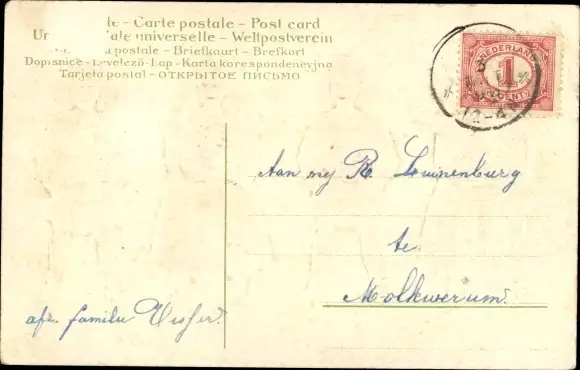 te - Carte postale - Post card
Un ale universelle - Weltpostverein
a postale - Briefkaart - Brefkort
Dopisnice - Levelező-Lap - Karta korespondencyjna
Tarjeta postal - ОТКРЫТОЕ ПИСЬМО
NEDERLAND
1
CENT
Aan mej R. Luinenburg
te
Molkwerum.
afz. familie Visser.